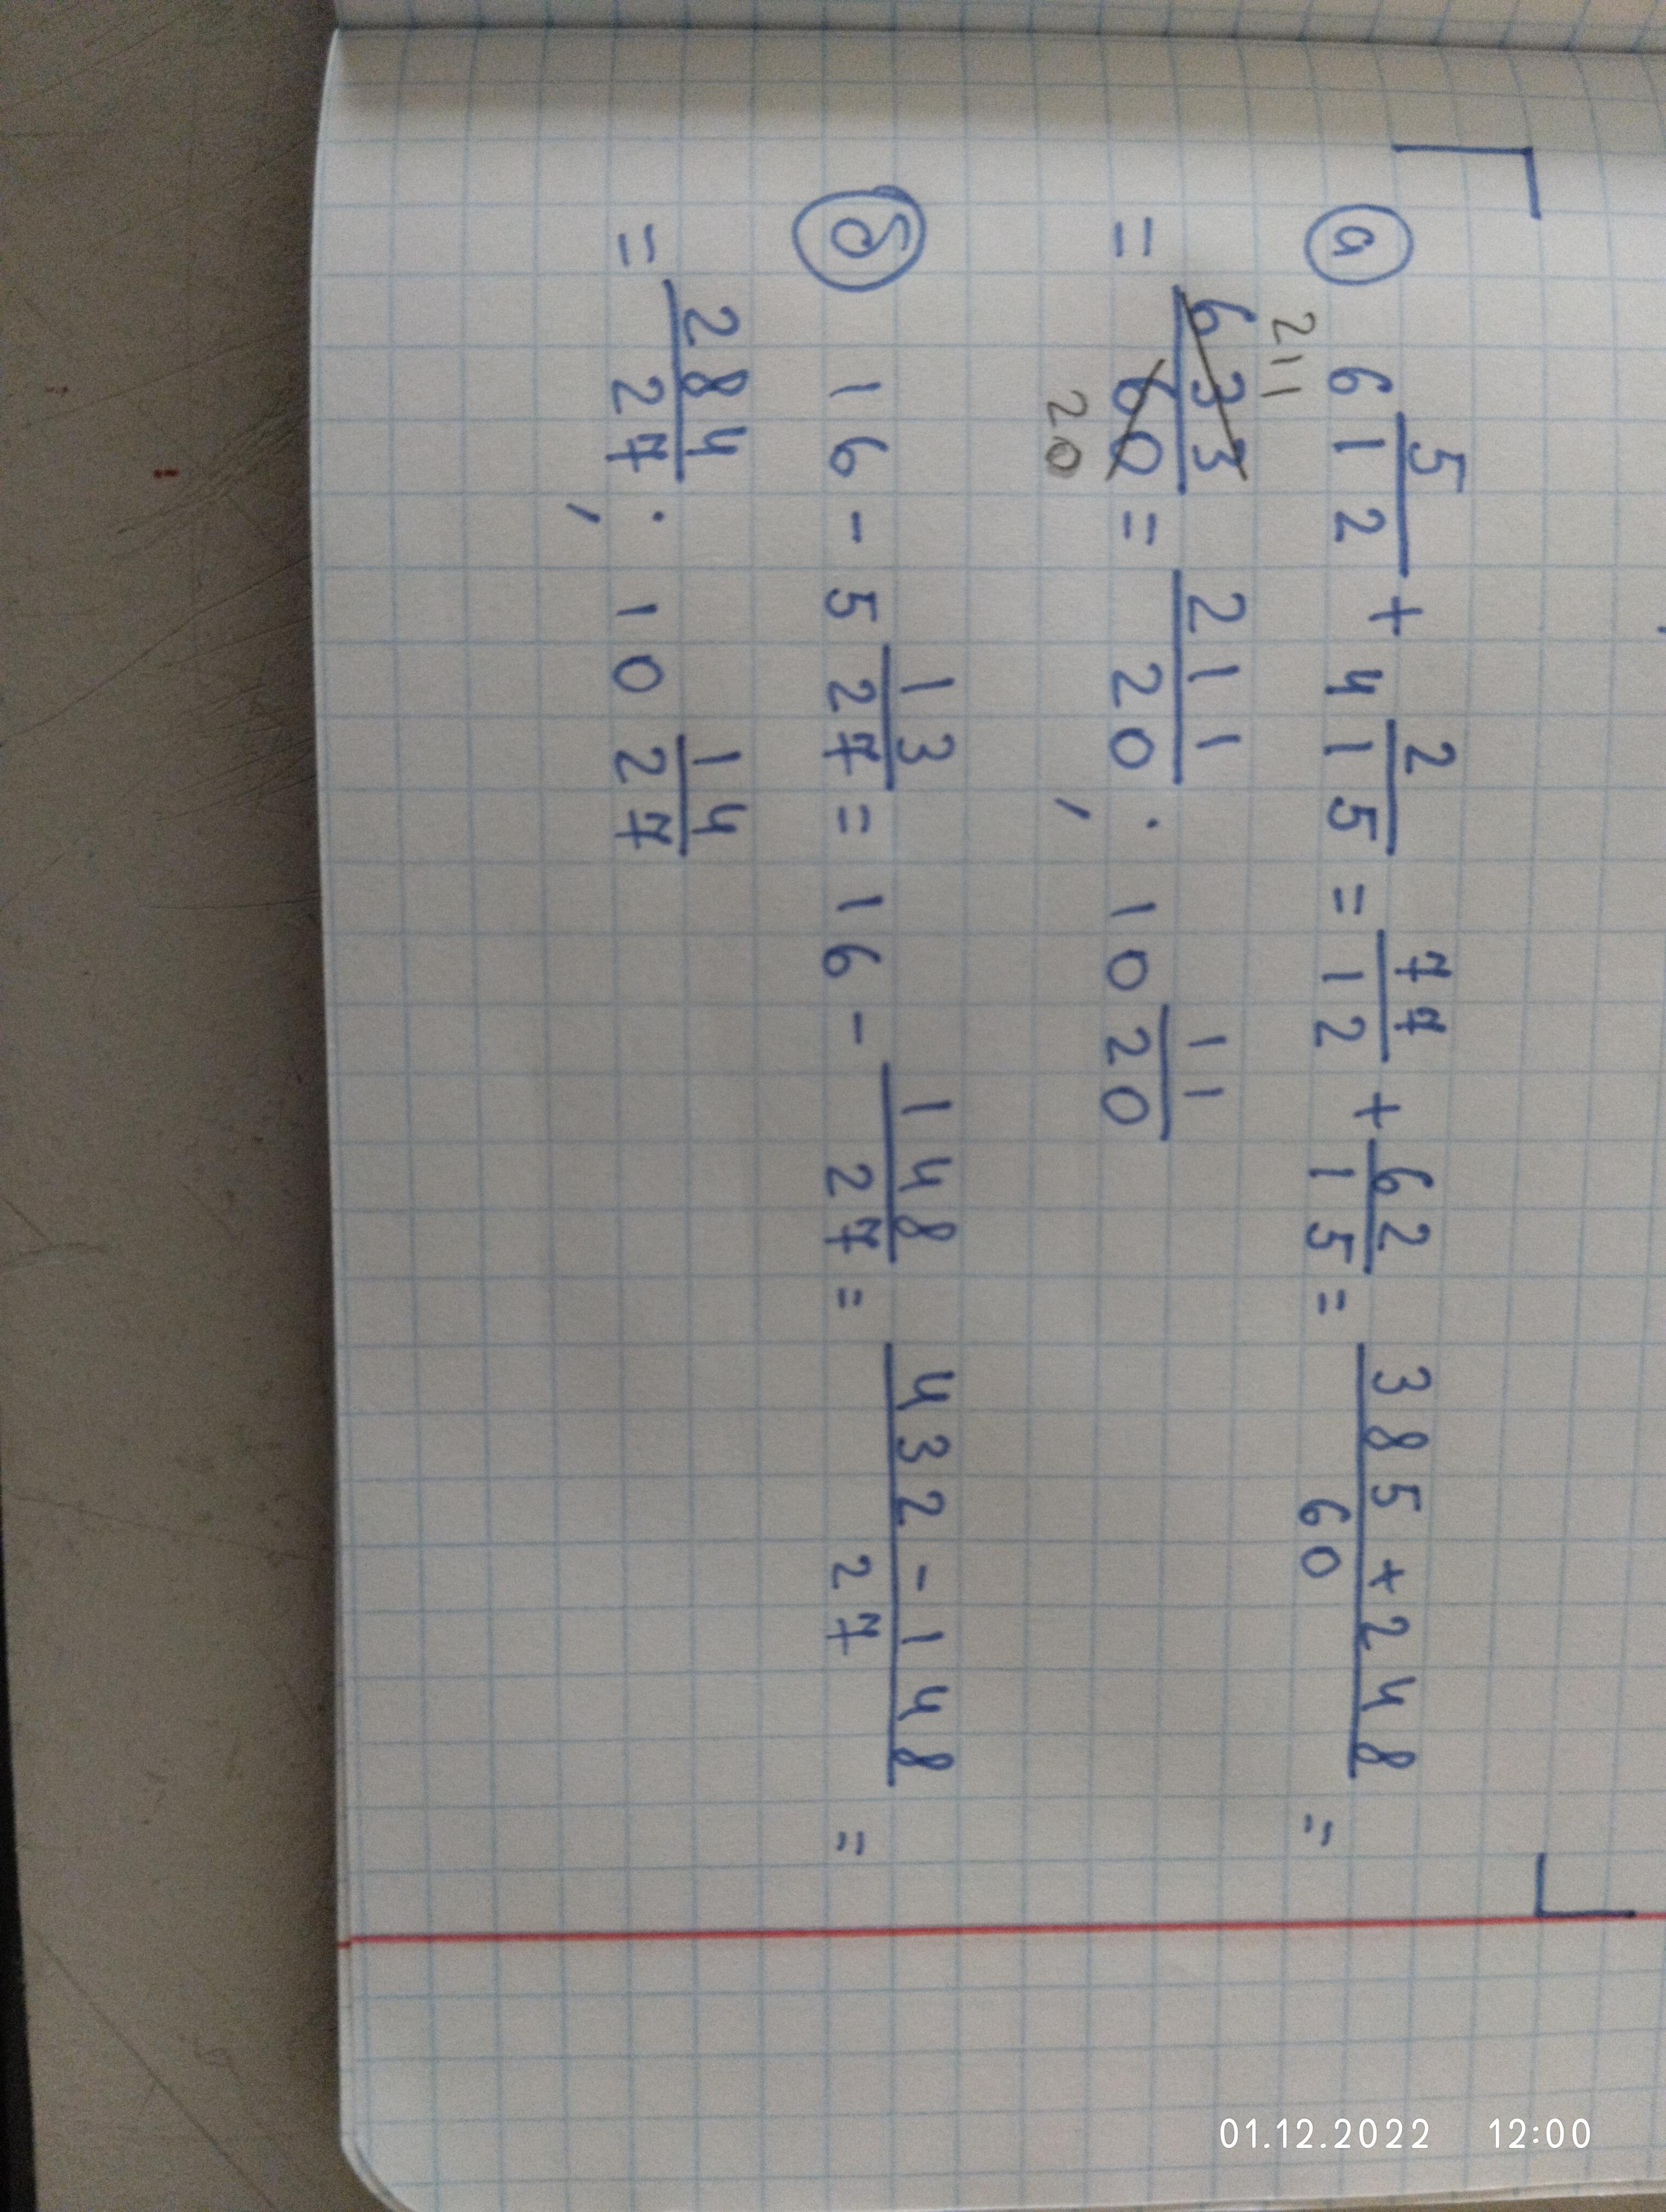 а) 6 5/12 + 4 2/15 = 77/12 + 62/15 = (385+248)/60 =
211
= 633/60 = 211/20 ; 10 11/20
20
б) 16 - 5 13/27 = 16 - 148/27 = (432-148)/27 =
= 284/27 ; 10 14/27
01.12.2022 12:00